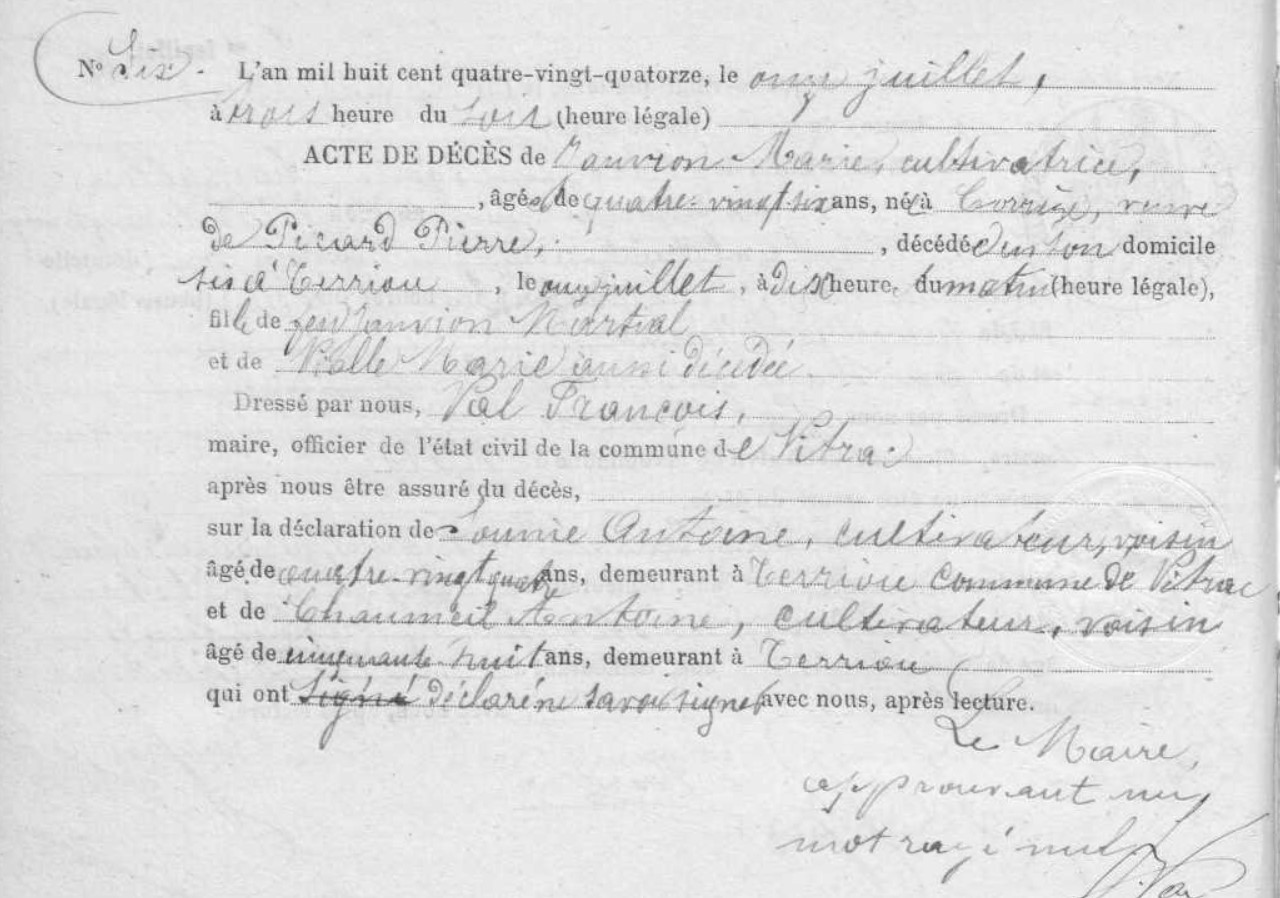 N° Six. L'an mil huit cent quatre-vingt-quatorze, le onze juillet,
à trois heure du soir (heure légale)
ACTE DE DÉCÈS de Janvion Marie, cultivatrice,
, âgée de quatre-vingt six ans, née à Corrèze, veuve
de Picard Pierre, , décédé en son domicile
sis à Terriou , le onze juillet , à dix heure, du matin (heure légale),
fille de feu Janvion Martial
et de Marie aussi décédée
Dressé par nous, Val François,
maire, officier de l'état civil de la commune de Vitrac
après nous être assuré du décès,
sur la déclaration de Antoine, cultivateur, voisin
âgé de quatre-vingt quatre ans, demeurant à Terriou commune de Vitrac
et de Chaumeil Antoine, cultivateur, voisin
âgé de cinquante huit ans, demeurant à Terriou
qui ont signé déclaré ne savoir signer avec nous, après lecture.
Le Maire,
approuvant un
mot rayé nul